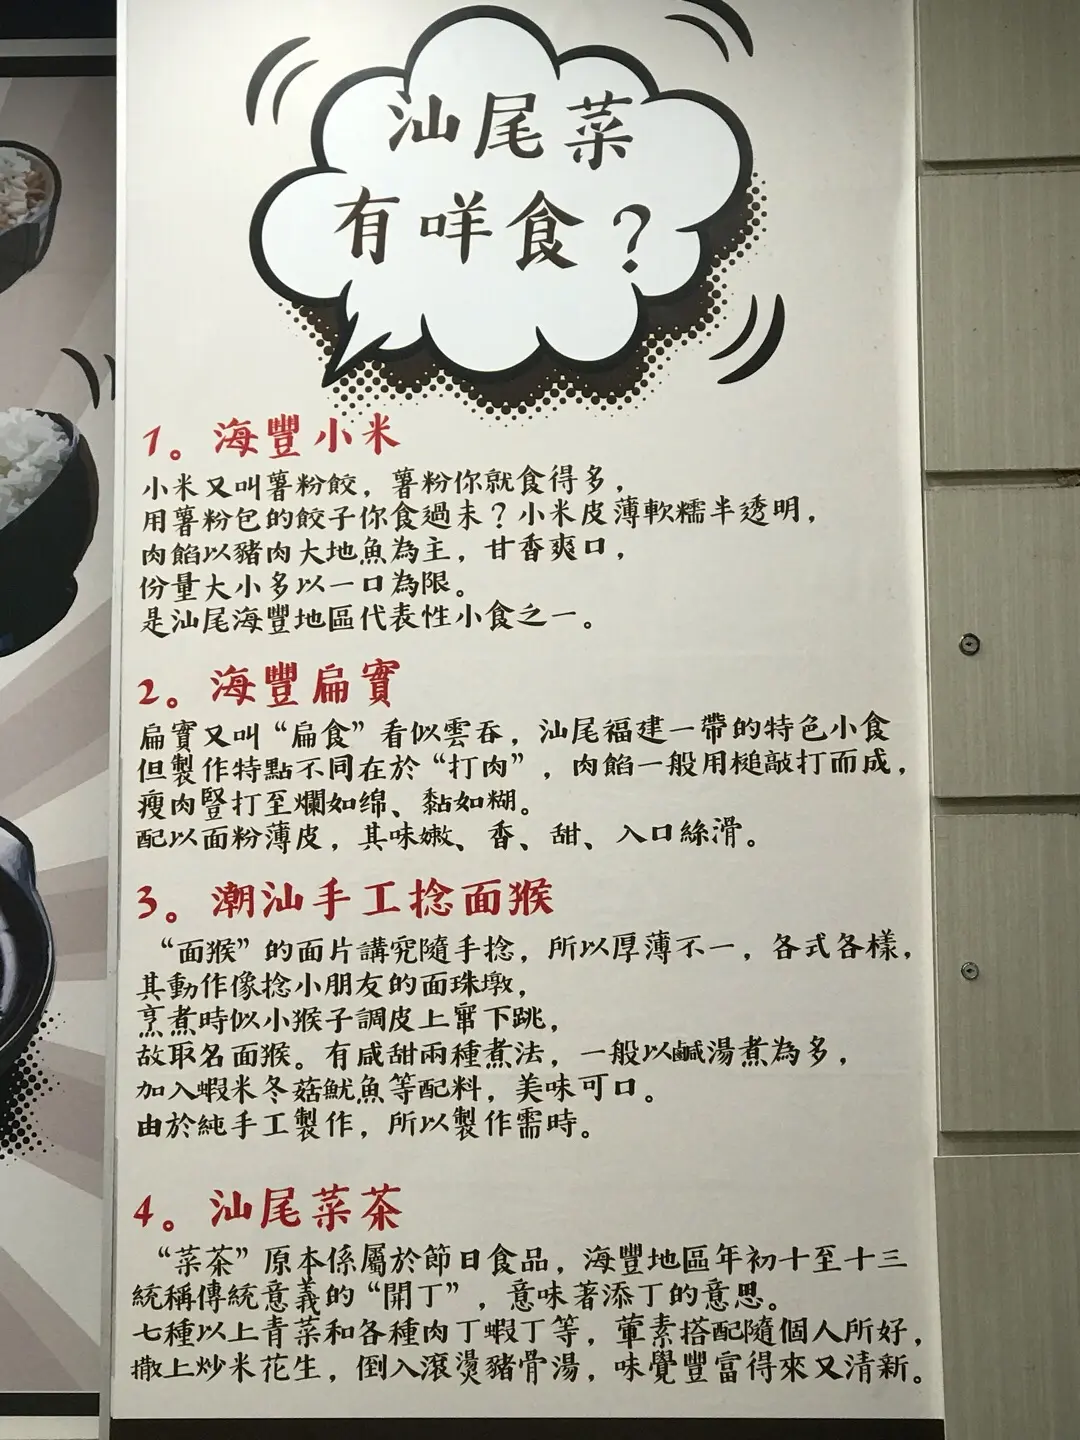 汕尾菜
有咩食？
1。海豐小米
小米又叫薯粉餃，薯粉你就食得多，
用薯粉包的餃子你食過未？小米皮薄軟糯半透明，
肉餡以豬肉大地魚為主，甘香爽口，
份量大小多以一口為限。
是汕尾海豐地區代表性小食之一。
2。海豐扁實
扁實又叫“扁食”看似雲吞，汕尾福建一帶的特色小食
但製作特點不同在於“打肉”，肉餡一般用槌敲打而成，
瘦肉豎打至爛如绵、黏如糊。
配以面粉薄皮，其味嫩、香、甜、入口絲滑。
3。潮汕手工捻面猴
“面猴”的面片講究隨手捻，所以厚薄不一，各式各樣，
其動作像捻小朋友的面珠墩，
烹煮時似小猴子調皮上窜下跳，
故取名面猴。有咸甜兩種煮法，一般以鹹湯煮為多，
加入蝦米冬菇魷魚等配料，美味可口。
由於純手工製作，所以製作需時。
4。汕尾菜茶
“菜茶”原本係屬於節日食品，海豐地區年初十至十三
統稱傳統意義的“開丁”，意味著添丁的意思。
七種以上青菜和各種肉丁蝦丁等，葷素搭配隨個人所好，
撒上炒米花生，倒入滾燙豬骨湯，味覺豐富得來又清新。